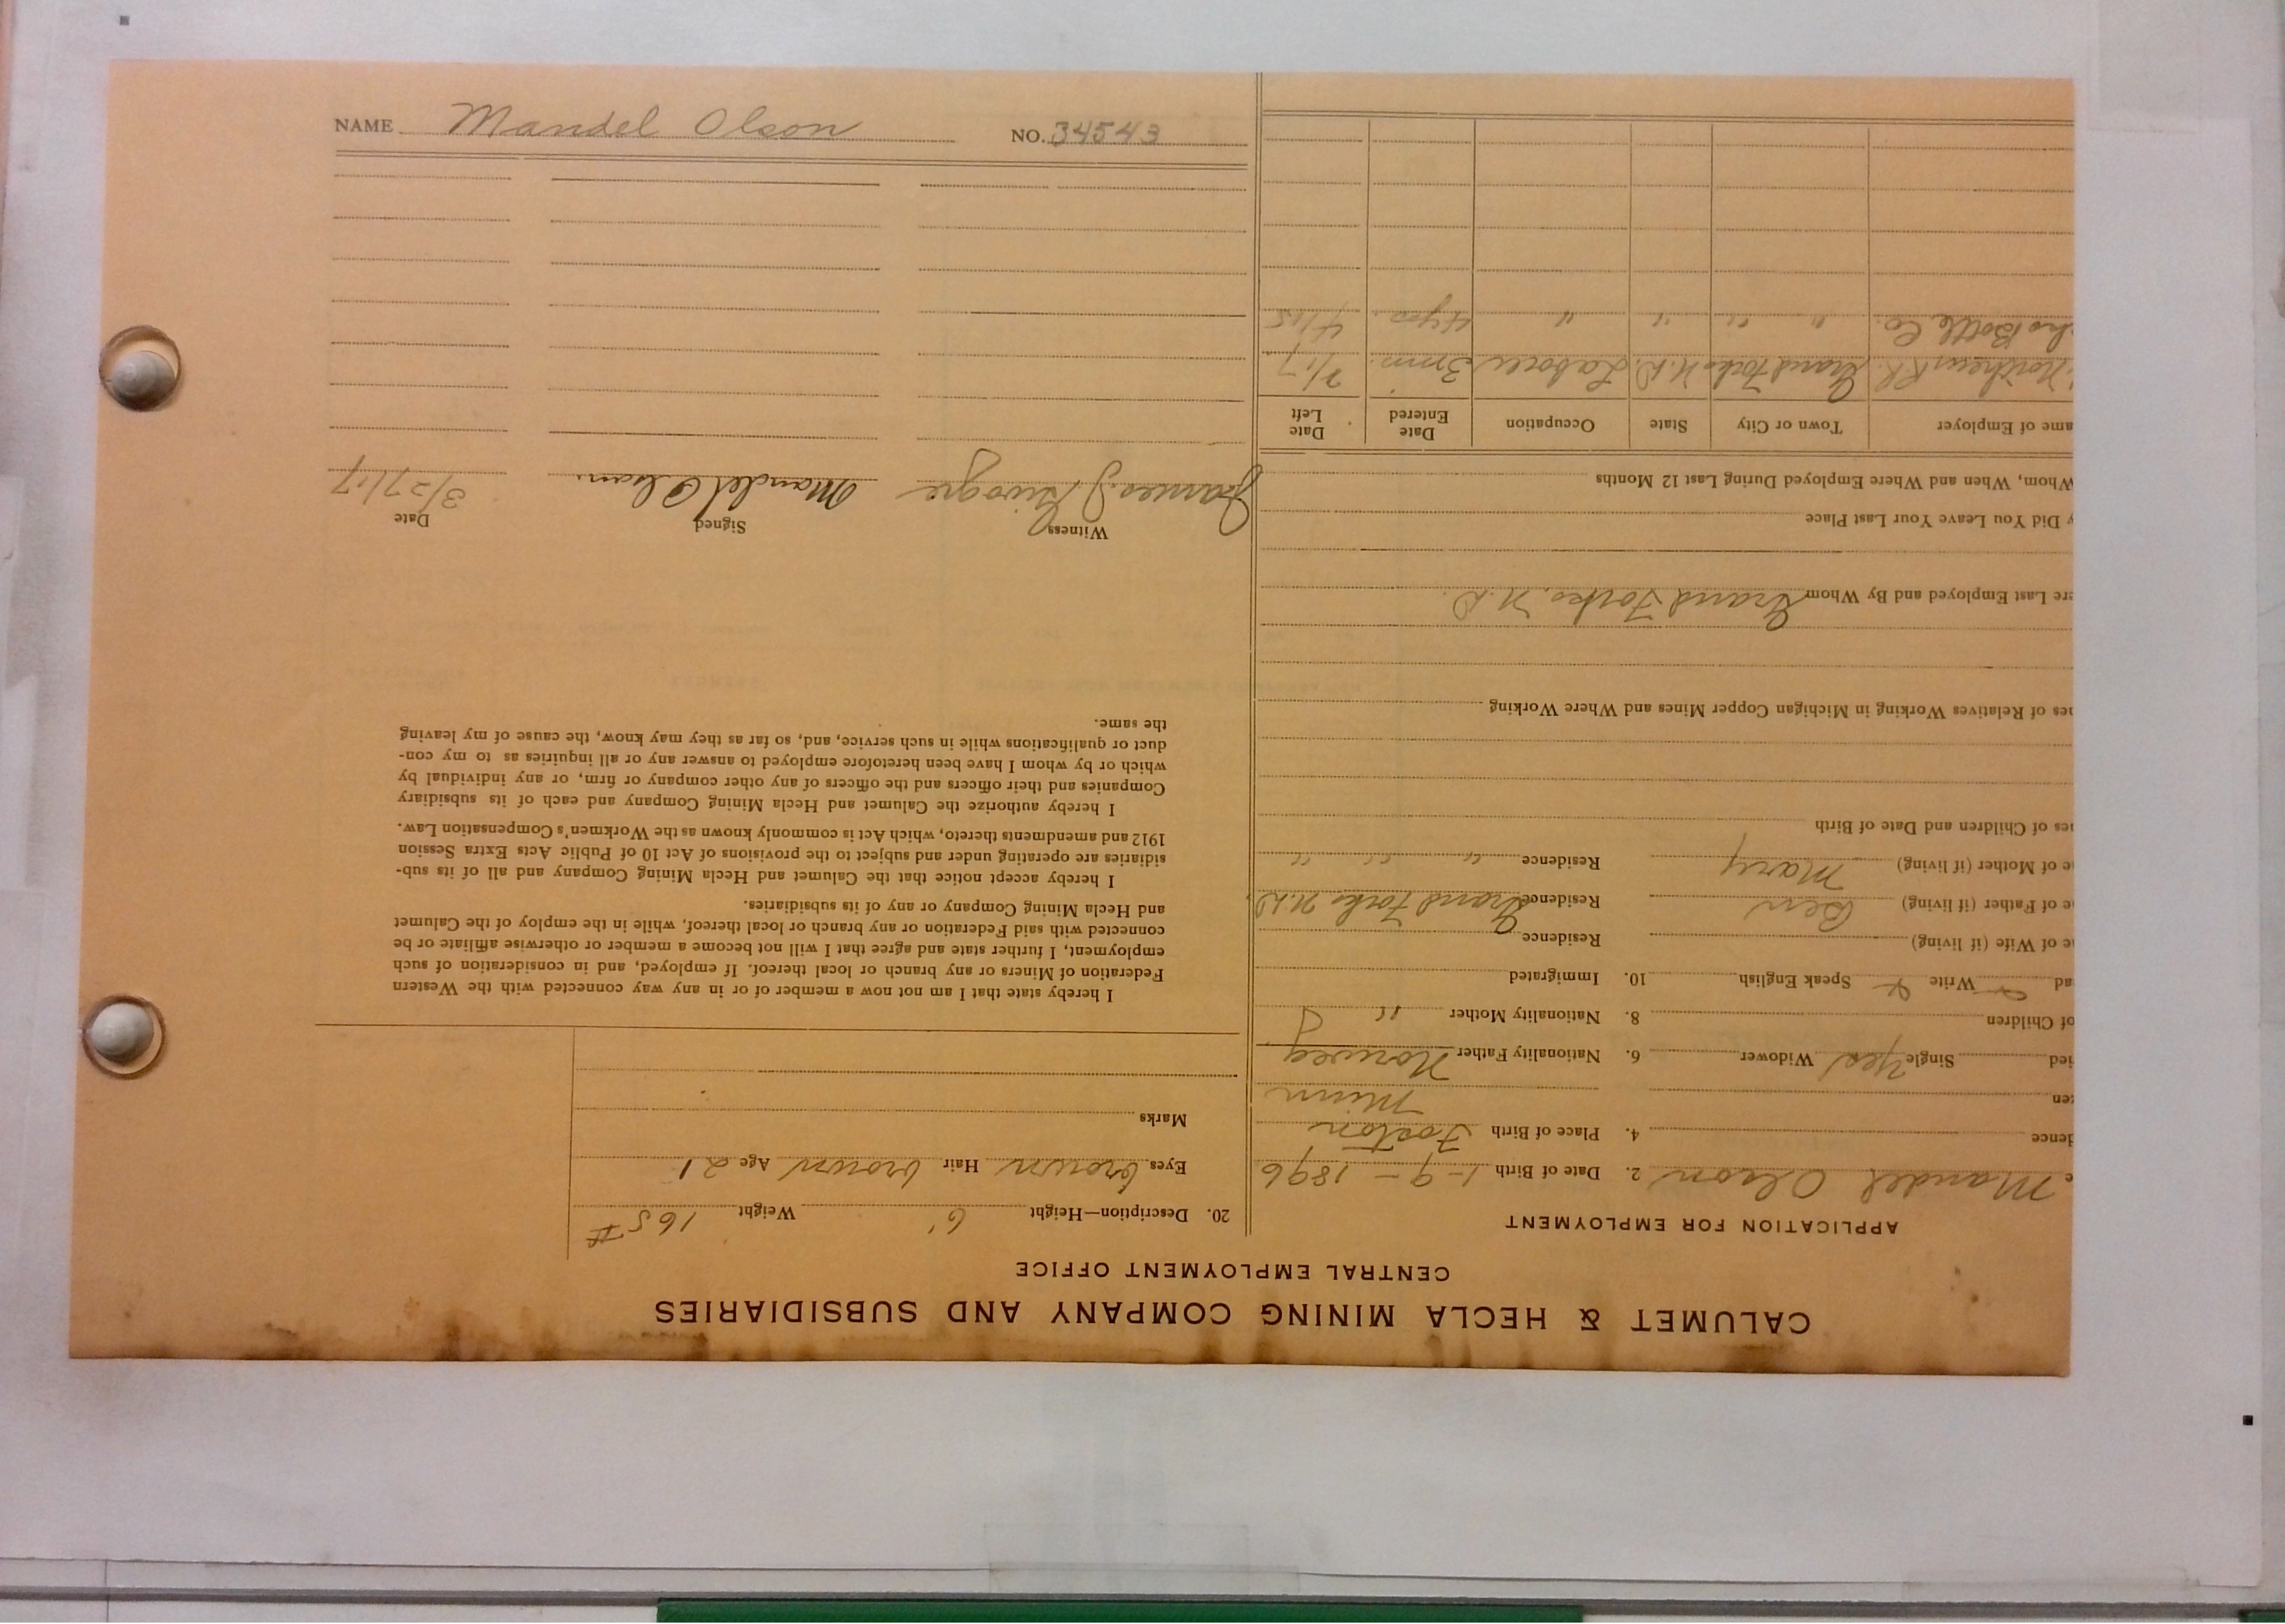 NAME Mandel Olson NO. 34543
CALUMET & HECLA MINING COMPANY AND SUBSIDIARIES
CENTRAL EMPLOYMENT OFFICE
APPLICATION FOR EMPLOYMENT
e Mandel Olson 2. Date of Birth 1-9-1896
dence 4. Place of Birth Foston
zen Minn
ied Single Yes Widower 6. Nationality Father Norweg
of Children 8. Nationality Mother " "
ad Write Speak English 10. Immigrated
e of Wife (if living) Residence
e of Father (if living) Ben Residence Grand Forks N.D.
e of Mother (if living) Mary Residence " " "
nes of Children and Date of Birth
nes of Relatives Working in Michigan Copper Mines and Where Working
ere Last Employed and By Whom Grand Forks, N.D.
y Did You Leave Your Last Place
Whom, When and Where Employed During Last 12 Months
ame of Employer Town or City State Occupation Date Entered Date Left
Northern RR. Grand Forks N.D. Laborer 3 mn. 3/17
Bottle Co. " " " " 4 yrs. 4/15
20. Description—Height 6' Weight 165#
Eyes brown Hair brown Age 21
Marks
I hereby state that I am not now a member of or in any way connected with the Western
Federation of Miners or any branch or local thereof. If employed, and in consideration of such
employment, I further state and agree that I will not become a member or otherwise affiliate or be
connected with said Federation or any branch or local thereof, while in the employ of the Calumet
and Hecla Mining Company or any of its subsidiaries.
I hereby accept notice that the Calumet and Hecla Mining Company and all of its sub-
sidiaries are operating under and subject to the provisions of Act 10 of Public Acts Extra Session
1912 and amendments thereto, which Act is commonly known as the Workmen's Compensation Law.
I hereby authorize the Calumet and Hecla Mining Company and each of its subsidiary
Companies and their officers and the officers of any other company or firm, or any individual by
which or by whom I have been heretofore employed to answer any or all inquiries as to my con-
duct or qualifications while in such service, and, so far as they may know, the cause of my leaving
the same.
Witness Signed Date
James J Mandel Olson. 3/27/17